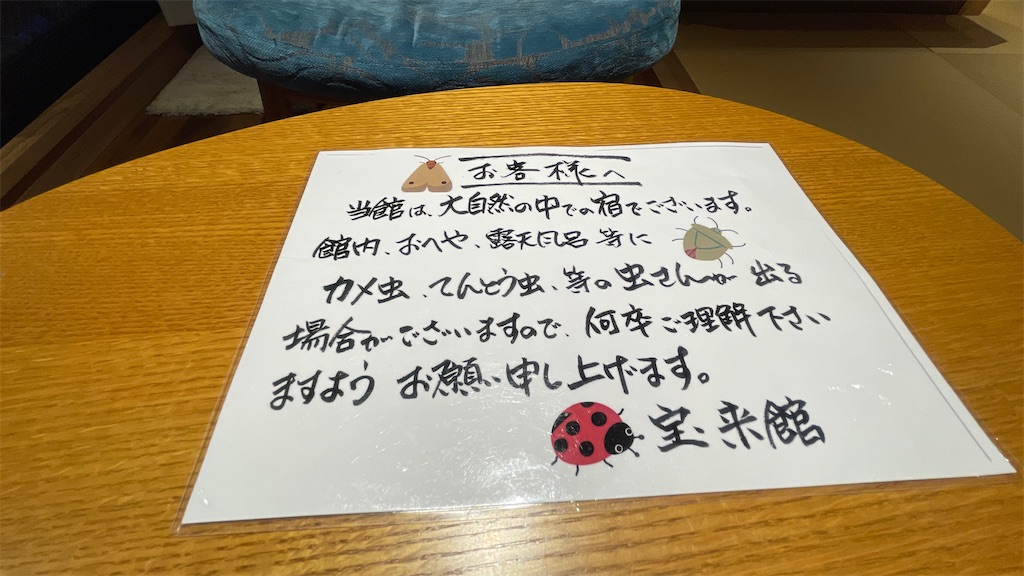 お客様へ
当館は、大自然の中での宿でございます。
館内、おへや、露天風呂等に
カメ虫、てんとう虫、等の虫さんが出る
場合がございますので、何卒ご理解下さい
ますよう お願い申し上げます。
宝来館